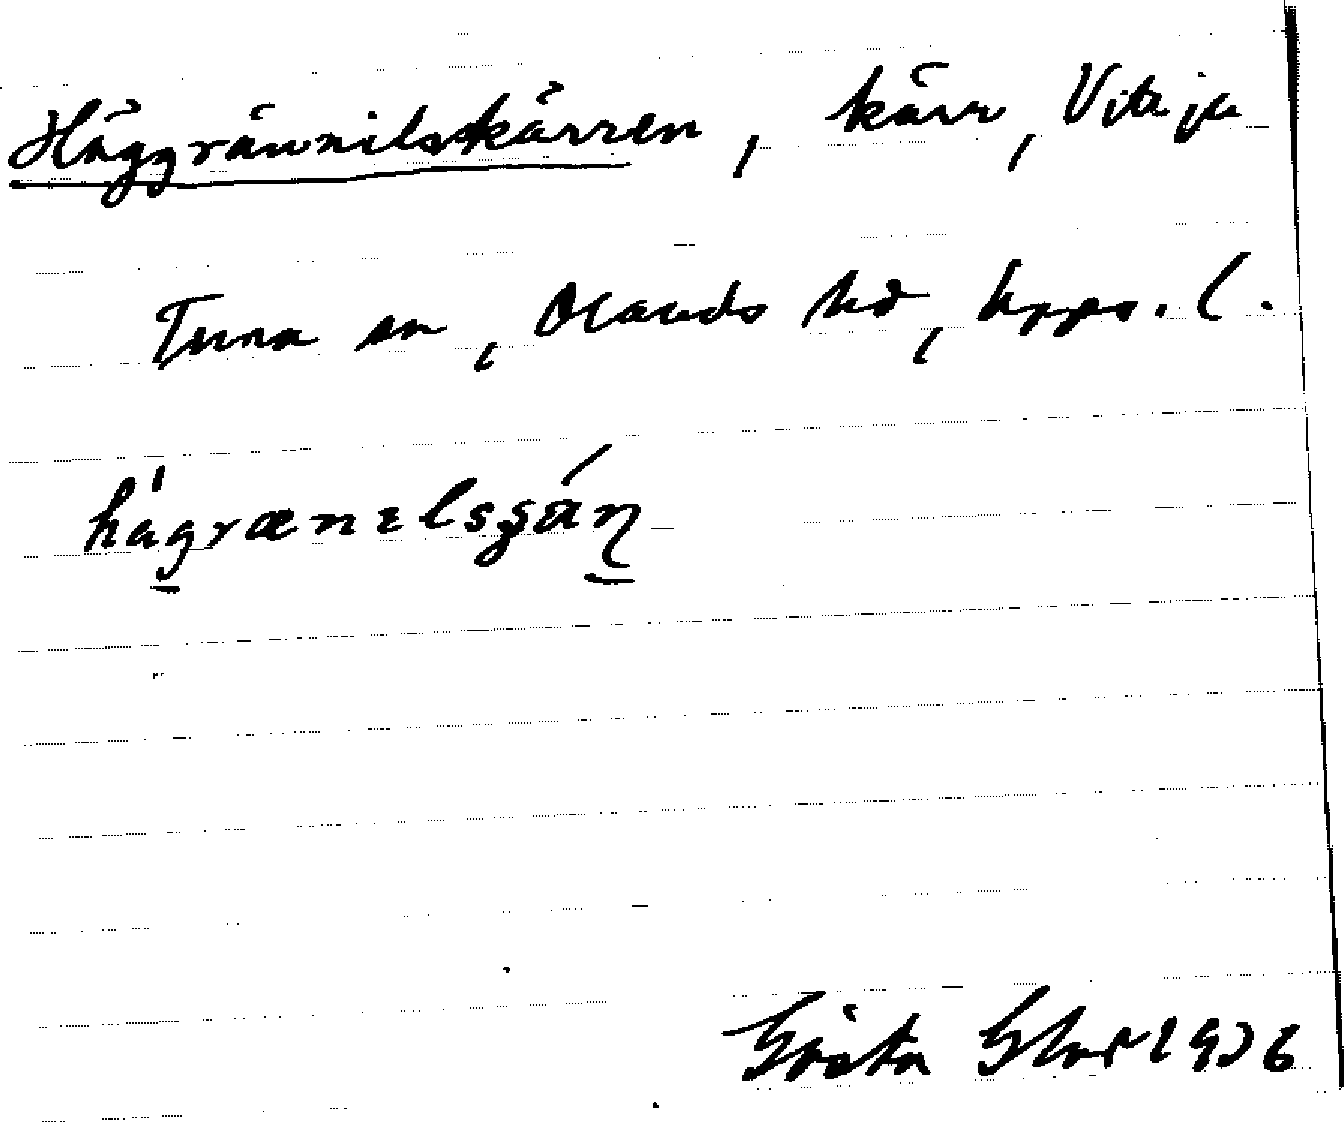 Håggrännilskärren, kärr, Vitsju
Tuna sn, Olands hd, Upps. l.
hågrænelsʂáɳ
Gösta 1936